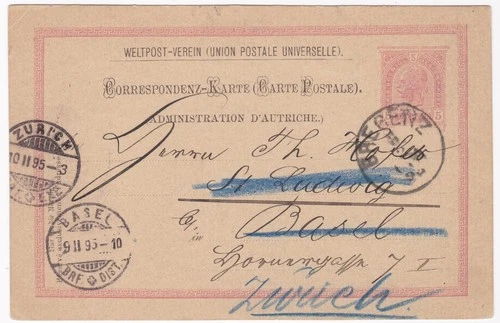 WELTPOST-VEREIN (UNION POSTALE UNIVERSELLE).
CORRESPONDENZ-KARTE (CARTE POSTALE).
ADMINISTRATION D'AUTRICHE.
5
5
BREGENZ
ZÜRICH
10 II 95 - 3
BASEL
9 II 95 - 10
BRF DIST.
Herrn Th.
St Ludwig
Basel
in
Hornergasse 7 I
Zürich.